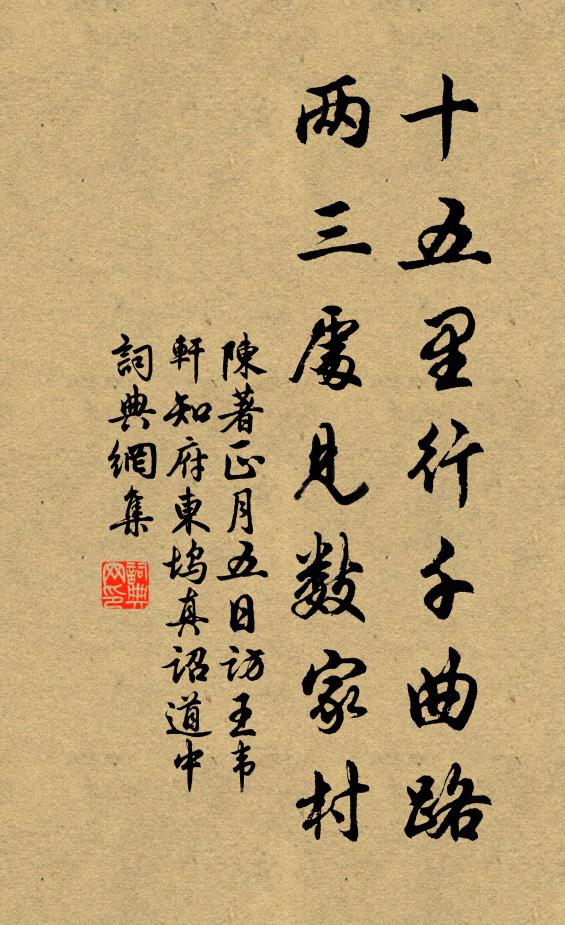 十五里行千曲路
两三處見数家村
陳著正月五日訪王韦
軒知府東塢真诏道中
詞典網集
詞典网印